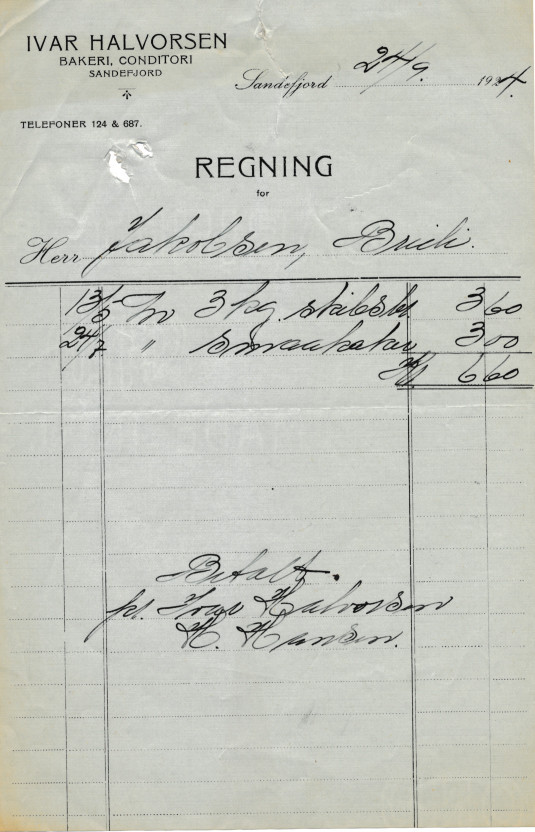 IVAR HALVORSEN
BAKERI, CONDITORI
SANDEFJORD
Sandefjord 24/9 1924.
TELEFONER 124 & 687.
REGNING
for
Herr Jakobsen,
13/5 3 kg skibsk. 3 60
24/7 " smaakaker 3 00
Kr. 6 60
Betalt.
Halvorsen
H. Hansen.